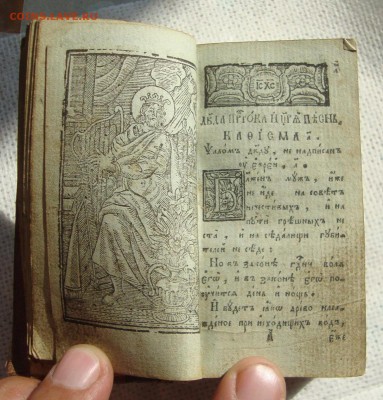 COINS.LAVE.RU
І҃С Х҃С
Дв҃да прⷪ҇рока и҆ цр҃ѧ пѣснь.
КАѲІСМА а҃.
Ѱаломъ дв҃ду, не надписан
ѹ҆ є҆врей, а҃.
Блаженъ мужъ, иже
не иде на совѣтъ
нечестивыхъ, и на
пути грешныхъ не
ста, и на сѣдалищи губи
телей не сѣде:
Но въ законе гдⷭ҇ни волѧ
єгѡ, и въ законе єгѡ по
учитсѧ день и нощь.
И будетъ ꙗкѡ древо наса
жденое при исходищихъ водъ,